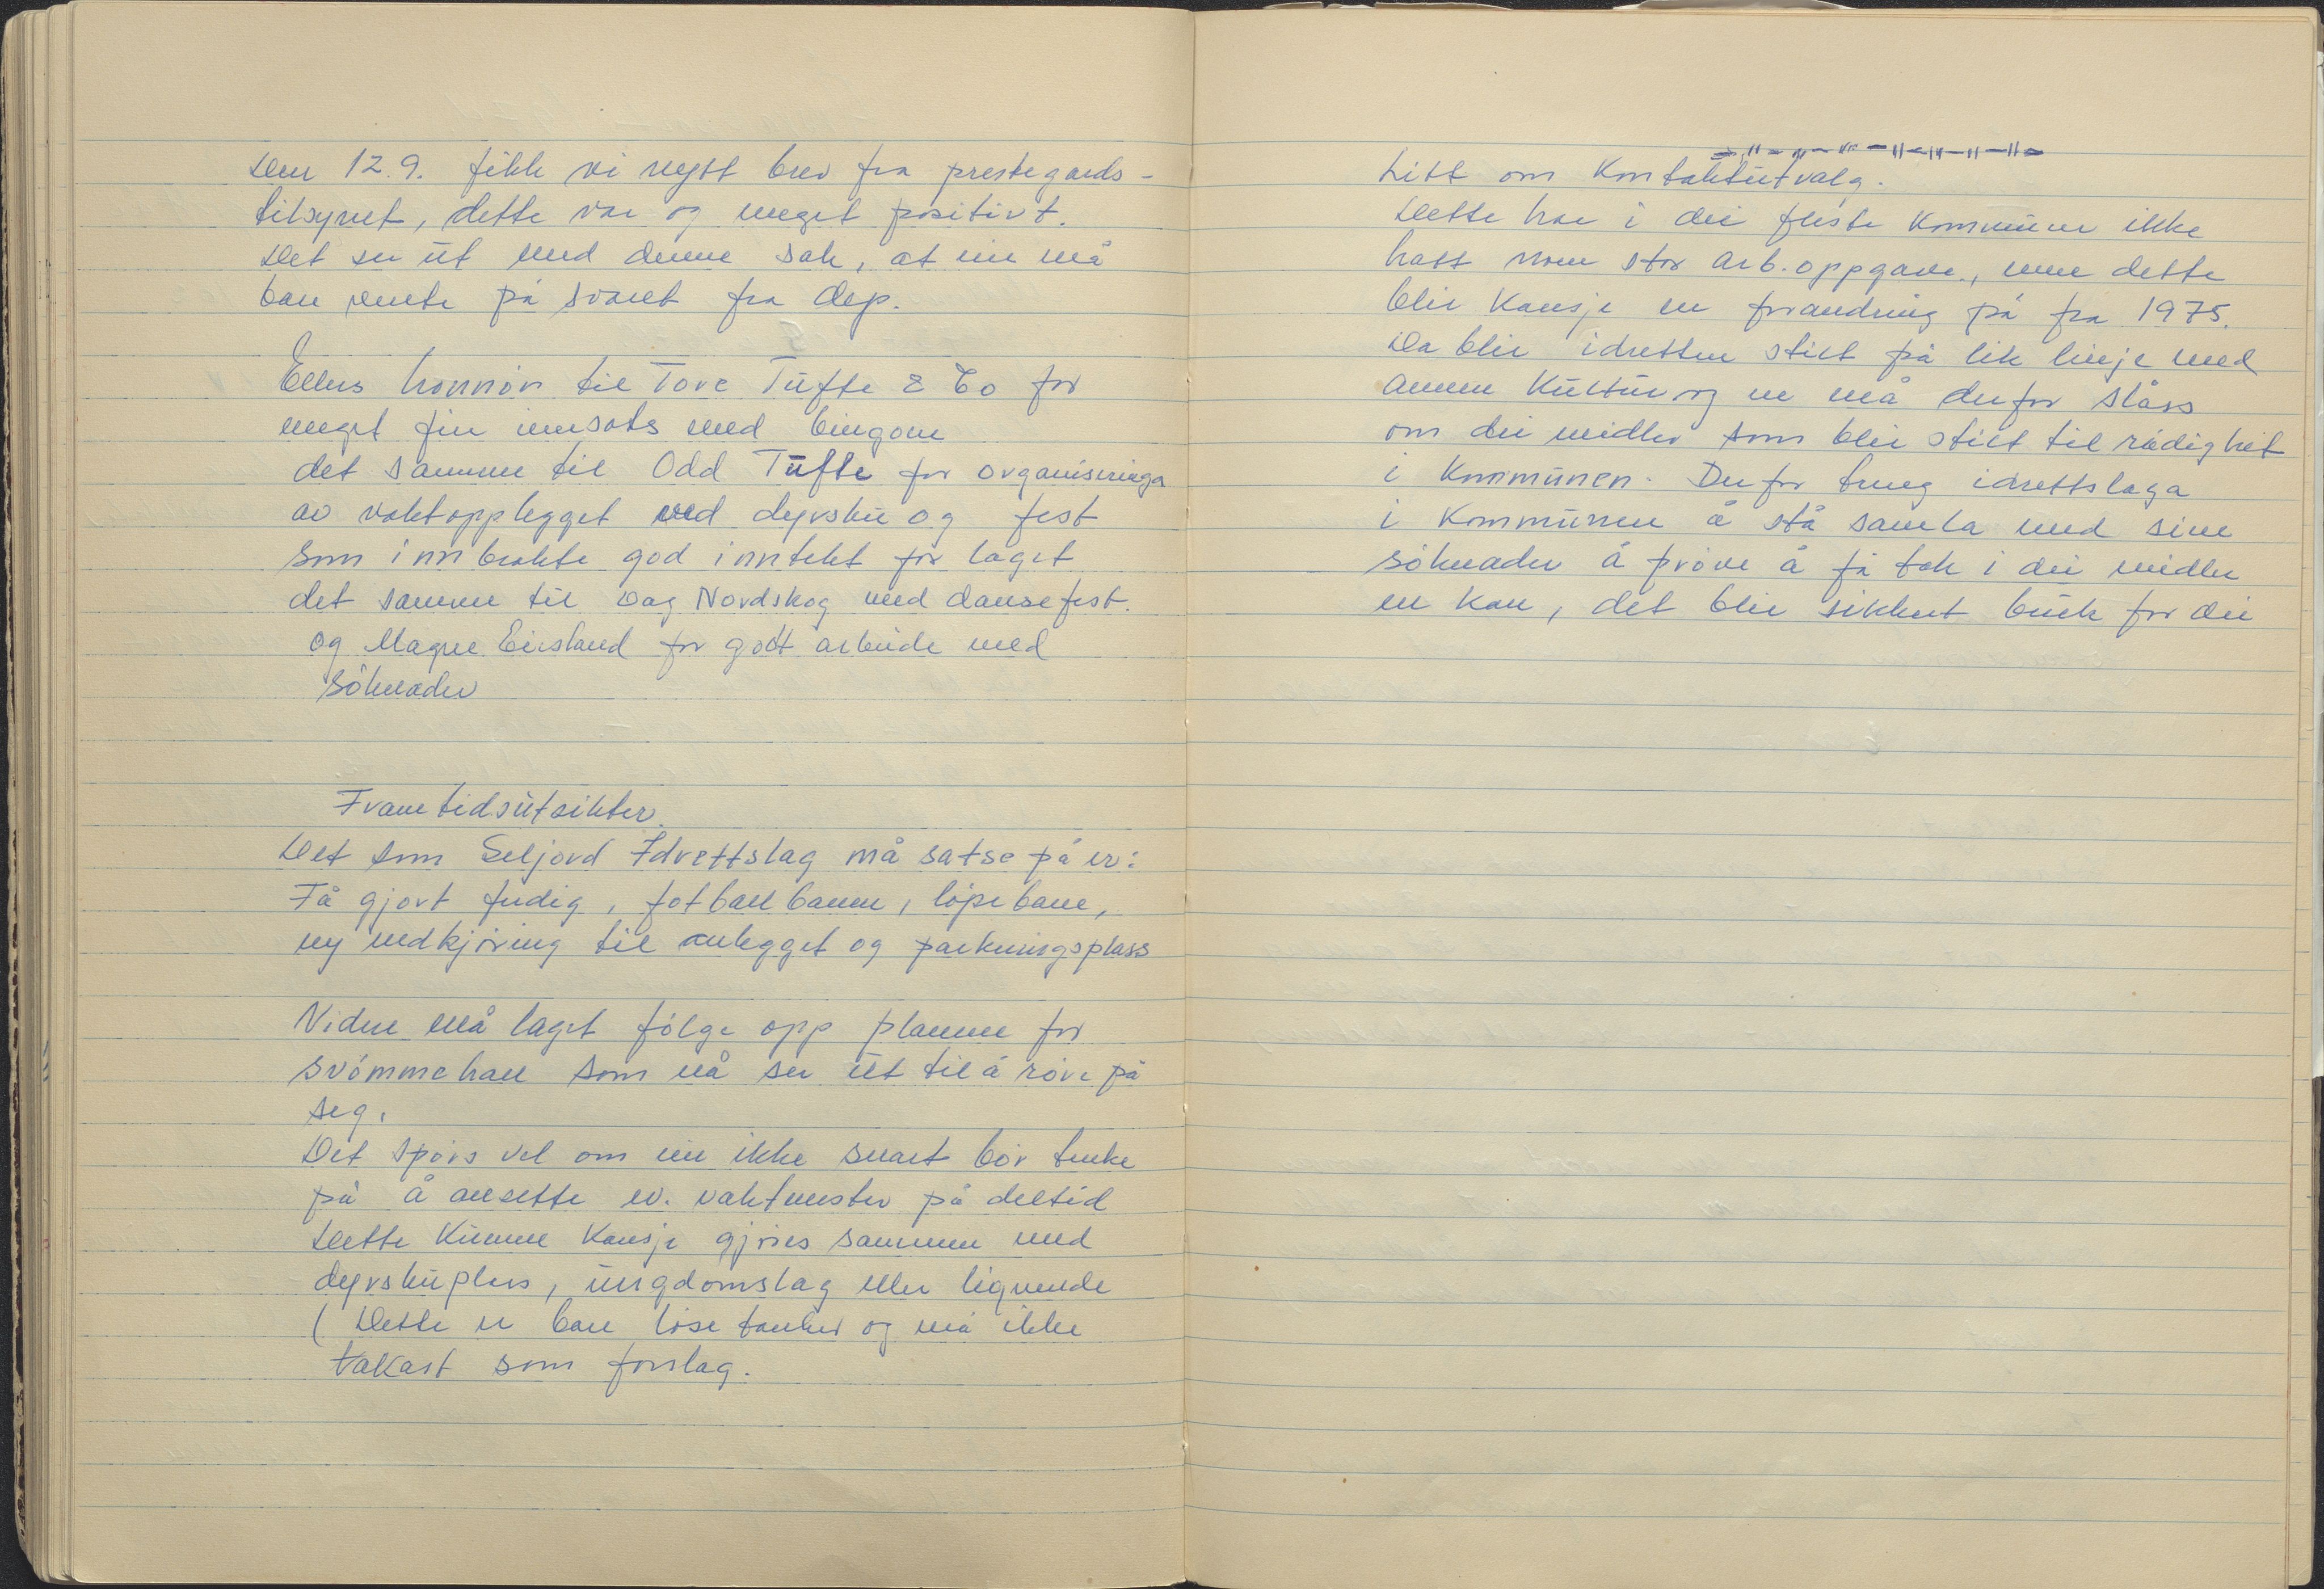 Den 12.9. fikk vi nytt brev fra prestegards-
tilsynet, dette var og meget positivt.
Det ser ut med denne sak, at ein må
bare vente på svaret fra dep.
Ellers honnør til Tove Tufte & Co for
meget fin innsats med bingoen
det samme til Odd Tufte for organiseringa
av vaktopplegget ved dyrsku og fest
som innbrakte god inntekt for laget
det samme til Dag Nordskog med dansefest.
og Magne Eirsland for godt arbeide med
søknader
Framtidsutsikter.
Det som Seljord Idrettslag må satse på er:
Få gjort ferdig, fotballbanen, løpebane,
ny nedkjøring til anlegget og parkeringsplass
Videre må laget følge opp planene for
svømmehall som nå ser ut til å røre på
seg.
Det spørs vel om ein ikke snart bør tenke
på å ansette ev. vaktmester på deltid
Dette kunne kansje gjøres sammen med
dyrskuplass, ungdomslag eller lignende
( Dette er bare løse tanker og må ikke
takast som forslag.
-"-"-"-"-"-"-"-"-
Litt om Kontaktutvalg.
Dette har i dei fleste kommuner ikke
hatt noen stor arb.oppgave, men dette
blir kansje en forandring på fra 1975.
Da blir idretten stilt på lik linje med
annen kultur og en må derfor slåss
om dei midler som blir stilt til rådighet
i kommunen. Derfor treng idrettslaga
i kommunen å stå samla med sine
søknader å prøve å få tak i dei midler
en kan, det blir sikkert bruk for dei